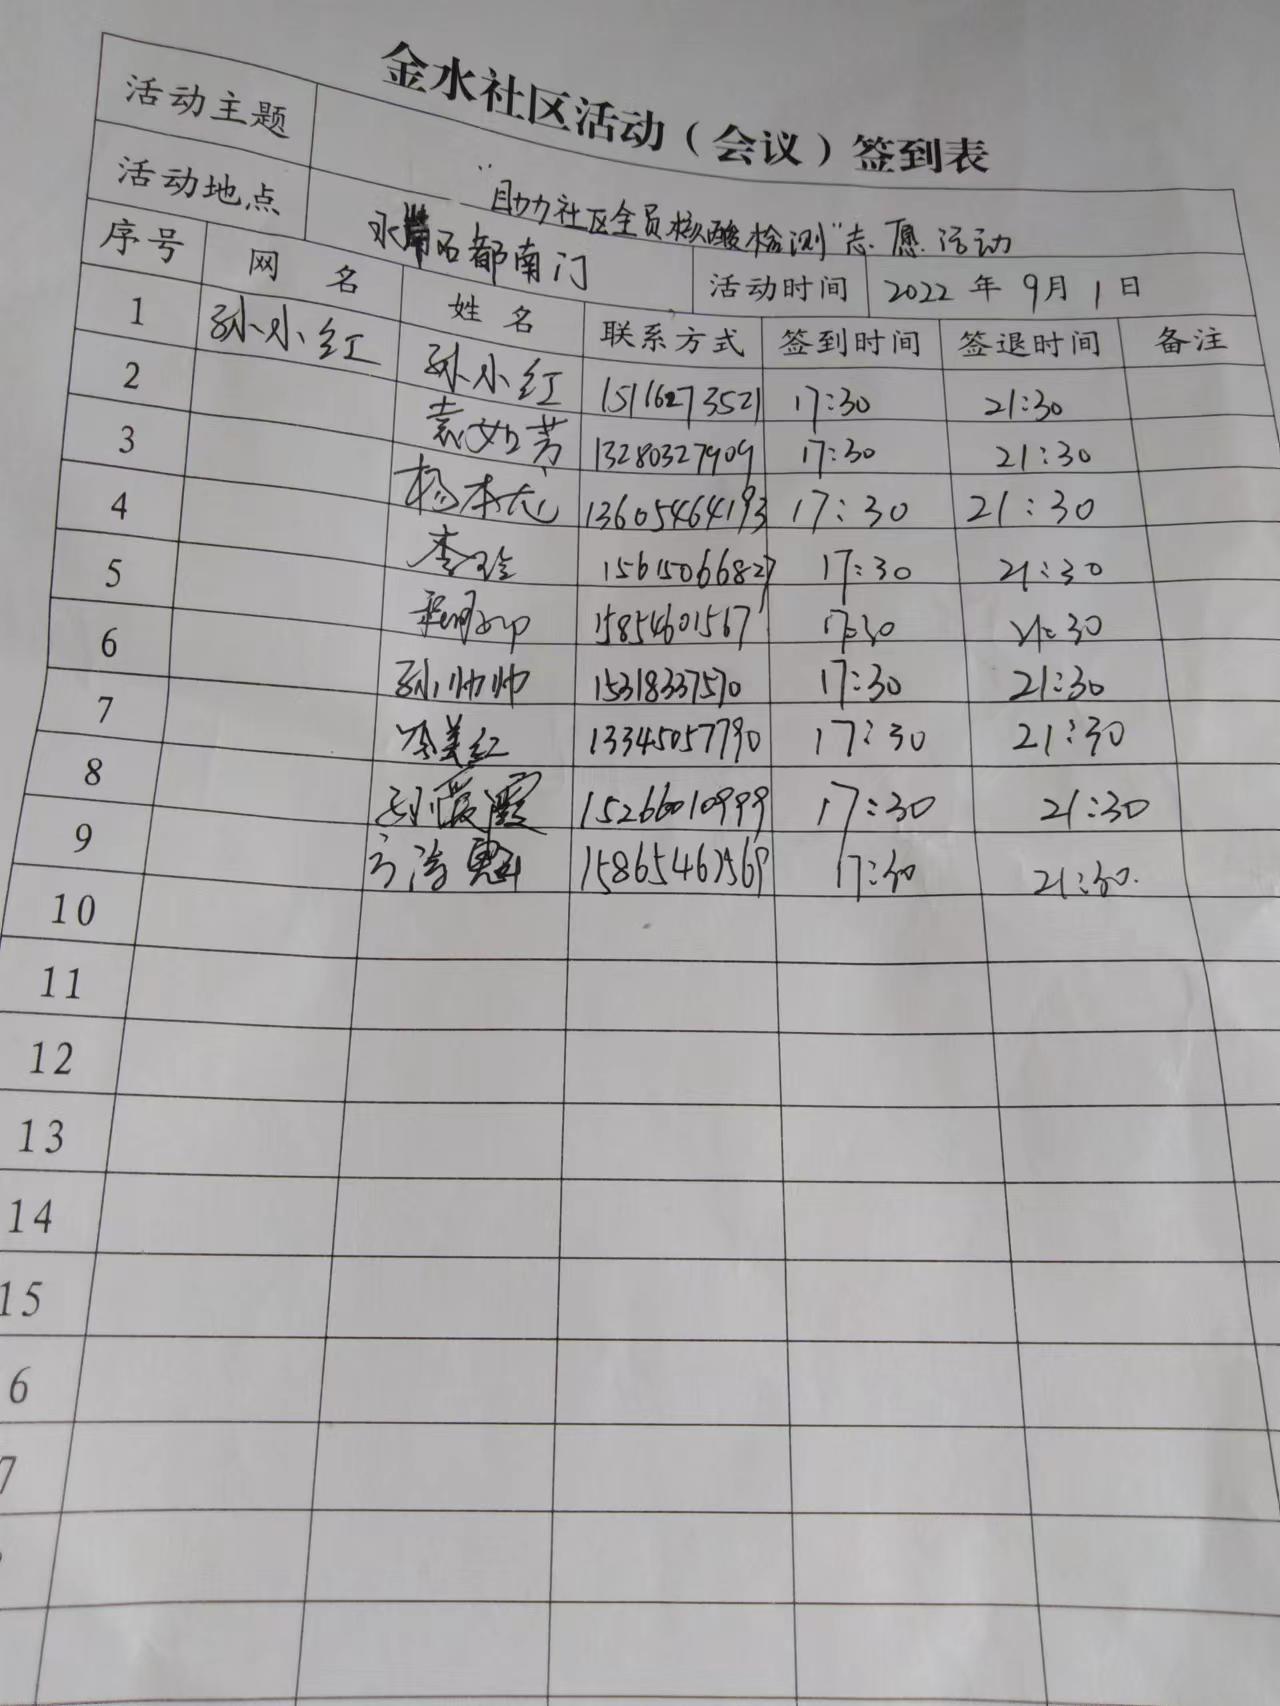 金水社区活动（会议）签到表
活动主题 "助力社区全员核酸检测"志愿活动
活动地点 名都南门 活动时间 2022年9月1日
序号 网名 姓名 联系方式 签到时间 签退时间 备注
1 孙小红 孙小红 15116273521 17:30 21:30
2 袁如芳 13280327909 17:30 21:30
3 杨本龙 13605464193 17:30 21:30
4 李玲 15615066827 17:30 21:30
5 15854601567 17:30 21:30
6 孙帅帅 15318337570 17:30 21:30
7 冷美红 13345057790 17:30 21:30
8 刘爱霞 15266010999 17:30 21:30
9 17:30 21:30
10
11
12
13
14
15
6
7